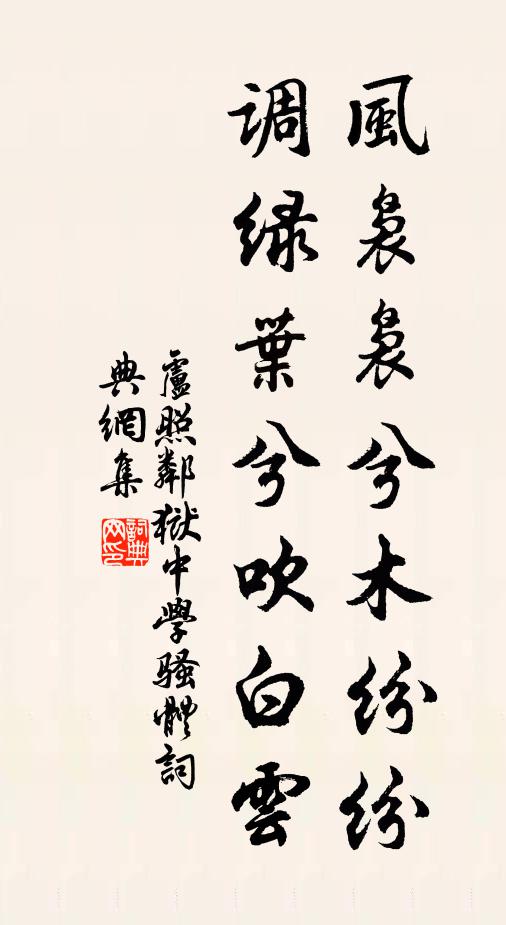 風裊裊兮木紛紛
調綠葉兮吹白雲
盧照鄰獄中學騷體詞
典網集
詞典网印